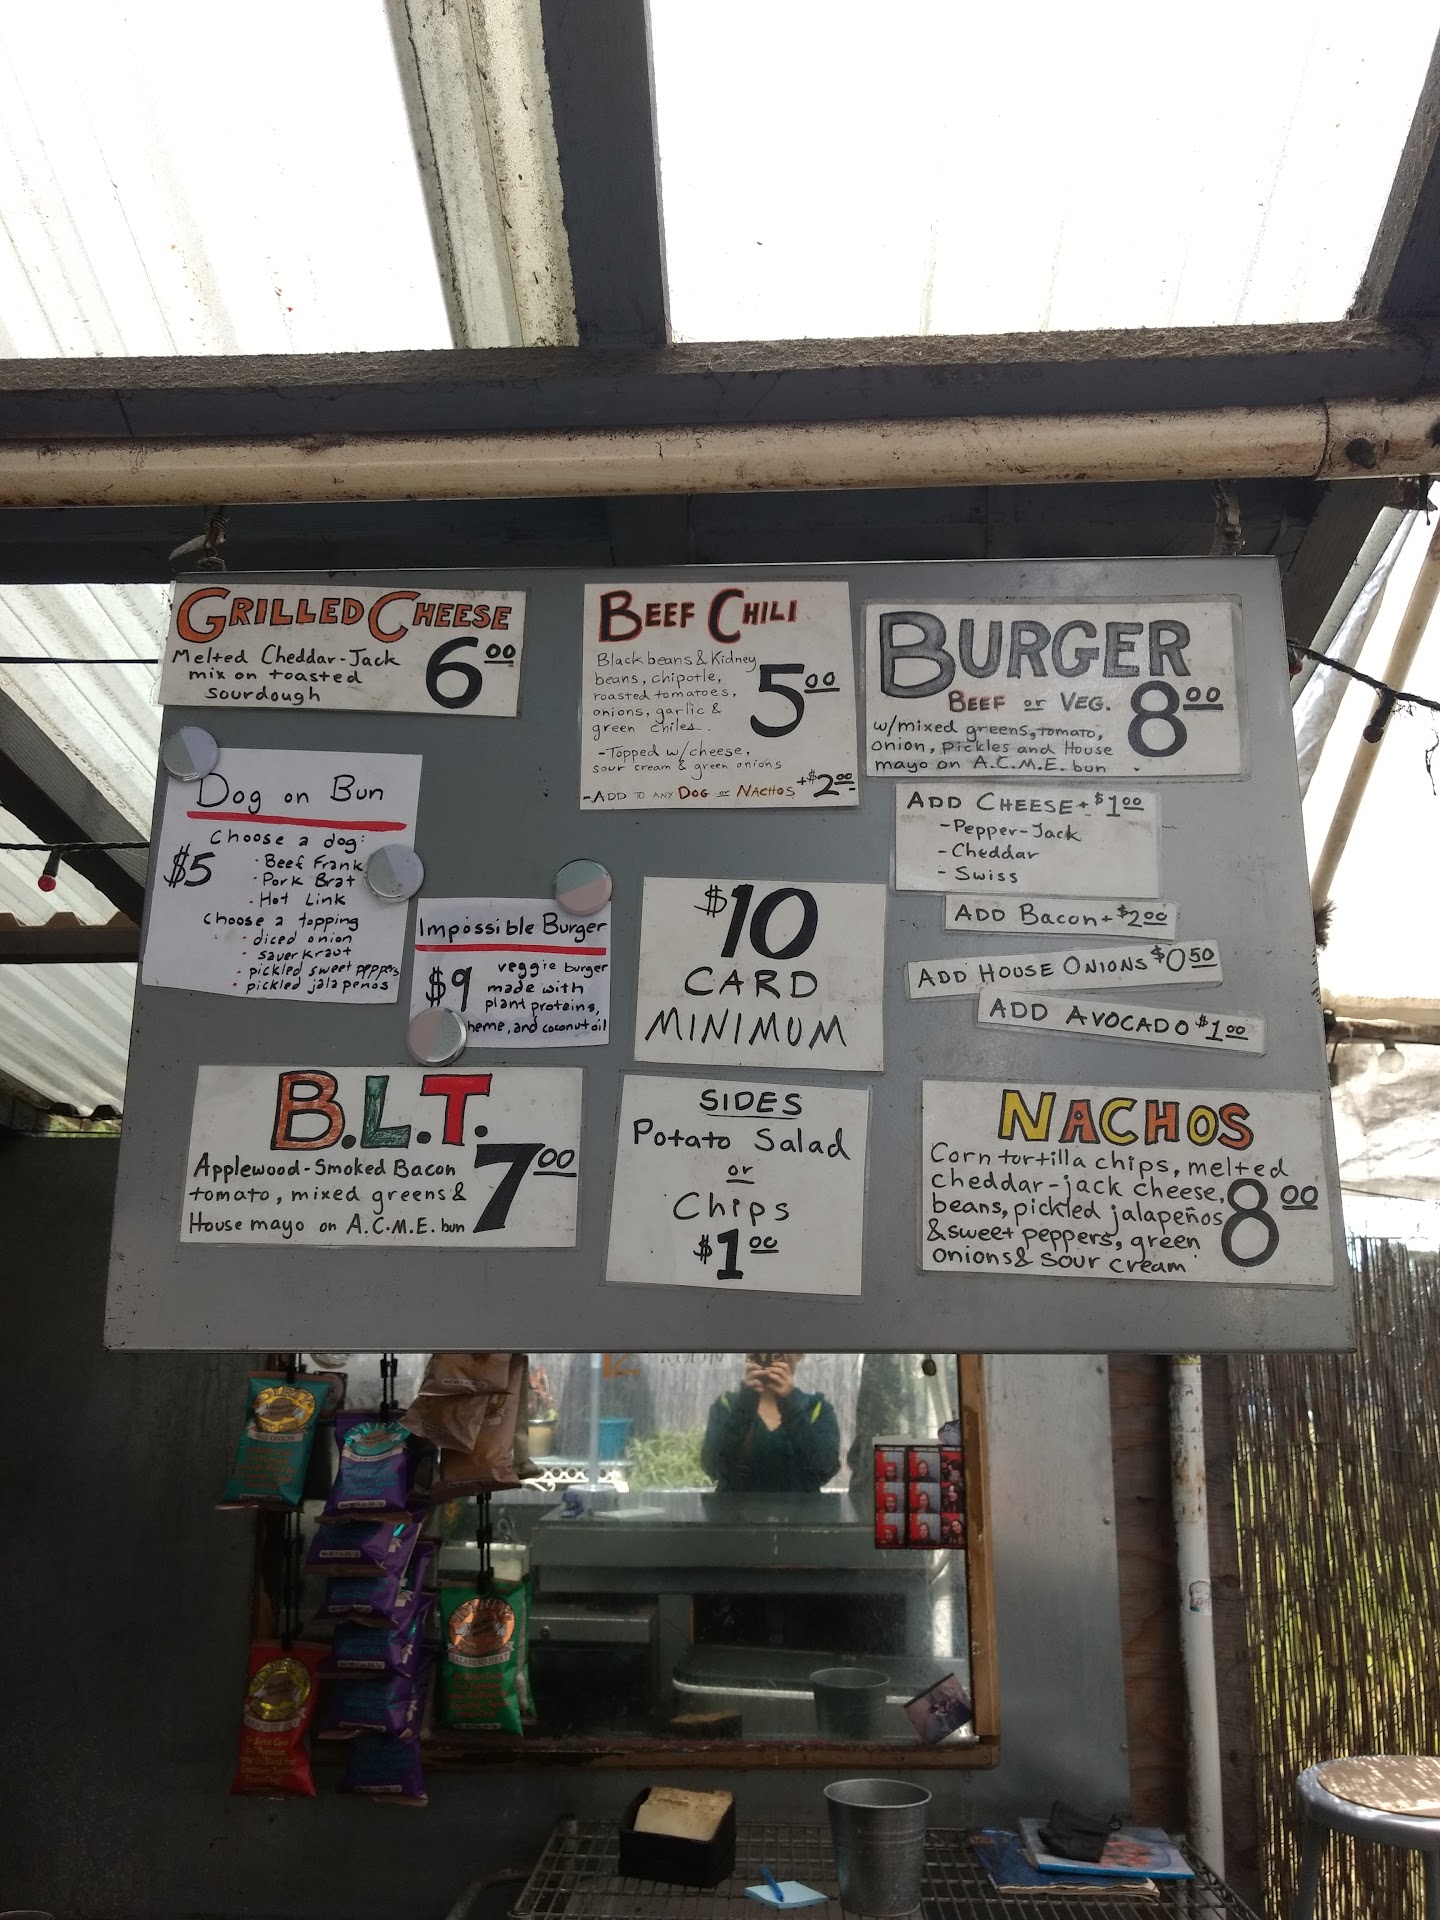 GRILLED CHEESE
Melted Cheddar-Jack
mix on toasted
sourdough
6.00
BEEF CHILI
Black beans & Kidney
beans, chipotle,
roasted tomatoes,
onions, garlic &
green chiles.
5.00
-Topped w/cheese,
sour cream & green onions
-ADD TO ANY DOG or NACHOS +$2.00
BURGER
BEEF or VEG.
8.00
w/mixed greens, tomato,
onion, pickles and House
mayo on A.C.M.E. bun
ADD CHEESE + $1.00
-Pepper-Jack
-Cheddar
-Swiss
ADD BACON + $2.00
ADD HOUSE ONIONS $0.50
ADD AVOCADO $1.00
Dog on Bun
Choose a dog:
$5
· Beef Frank
· Pork Brat
· Hot Link
Choose a topping
· diced onion
· saurkraut
· pickled sweet peppers
· pickled jalapeños
Impossible Burger
$9
veggie burger
made with
plant proteins,
heme, and coconut oil
$10
CARD
MINIMUM
B.L.T.
Applewood-Smoked Bacon
tomato, mixed greens &
House mayo on A.C.M.E. bun
7.00
SIDES
Potato Salad
or
Chips
$1.00
NACHOS
Corn tortilla chips, melted
cheddar-jack cheese,
beans, pickled jalapeños
& sweet peppers, green
onions & sour cream
8.00
JALAPENO HEAT